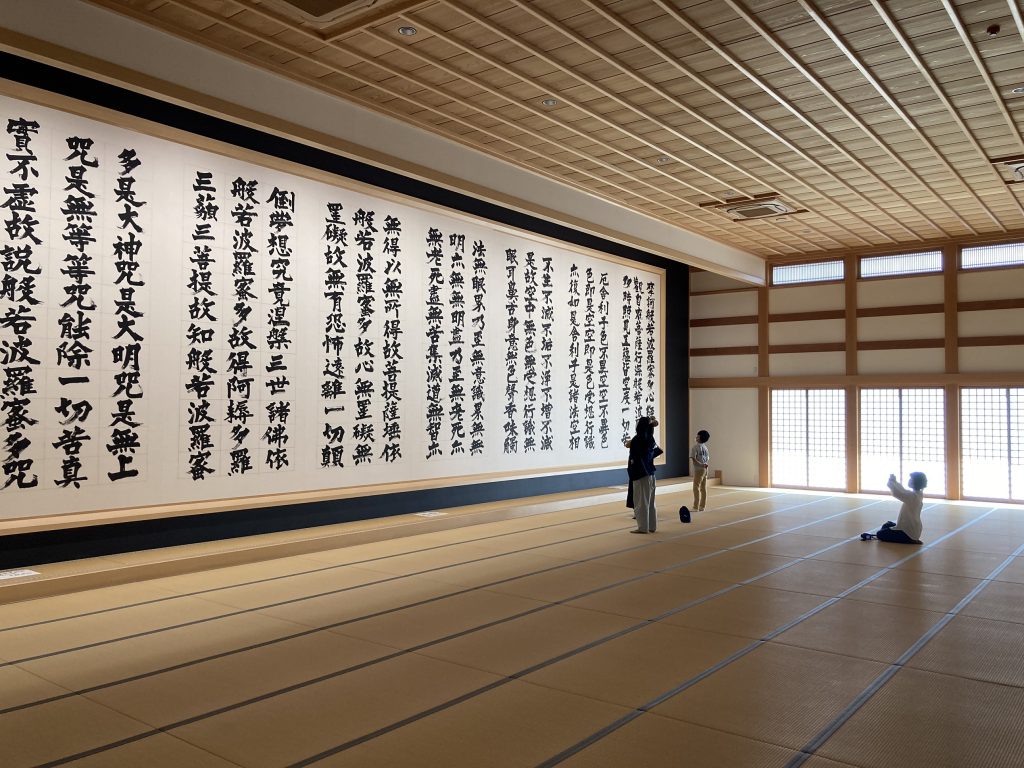 摩訶般若波羅蜜多心經
觀自在菩薩行深般若波羅蜜
多時照見五蘊皆空度一切
厄舎利子色不異空空不異色
色即是空空即是色受想行識
亦復如是舎利子是諸法空相
不生不滅不垢不浄不増不減
是故空中無色無受想行識無
眼耳鼻舌身意無色聲香味觸
法無眼界乃至無意識界無無
明亦無無明盡乃至無老死亦
無老死盡無苦集滅道無智亦
無得以無所得故菩提薩埵依
般若波羅蜜多故心無罣礙無
罣礙故無有恐怖遠離一切顛
倒夢想究竟涅槃三世諸佛依
般若波羅蜜多故得阿耨多羅
三藐三菩提故知般若波羅蜜
多是大神咒是大明咒是無上
咒是無等等咒能除一切苦真
實不虚故説般若波羅蜜多咒